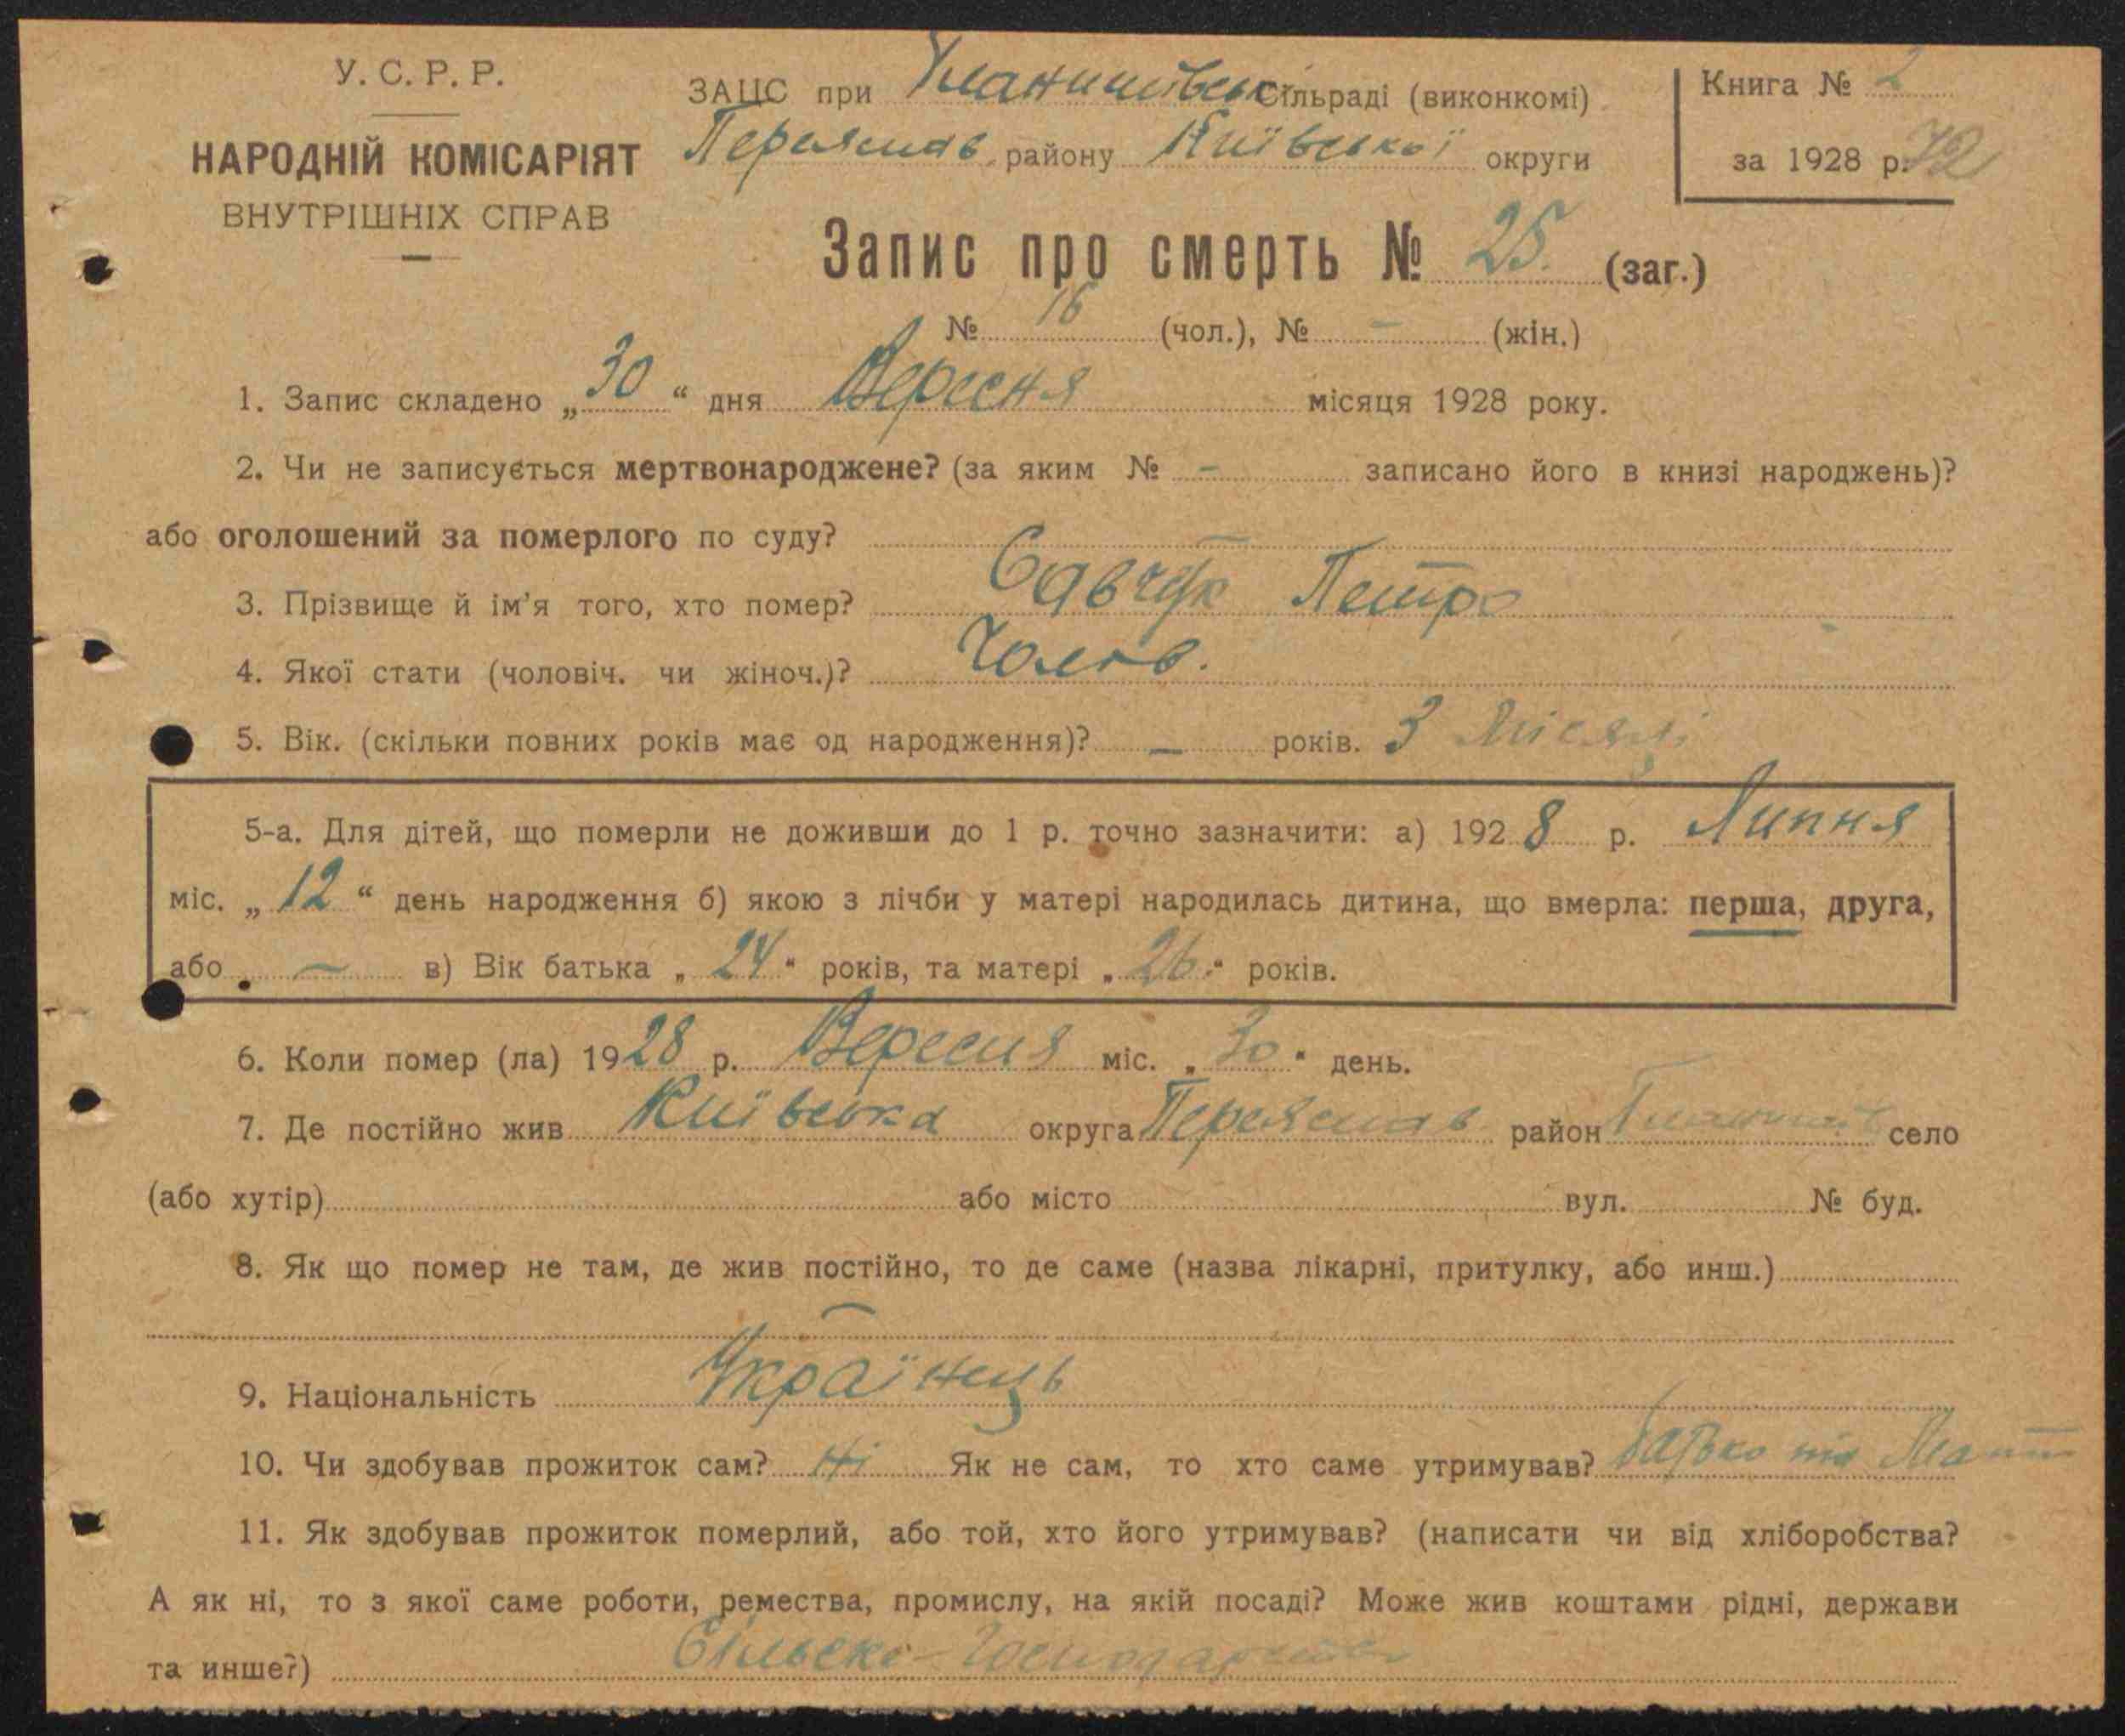 У. С. Р. Р.
НАРОДНІЙ КОМІСАРІЯТ
ВНУТРІШНІХ СПРАВ
ЗАЦС при сільраді (виконкомі)
Переяслав району Київської округи
Книга № 2
за 1928 р. 72
Запис про смерть № 25. (заг.)
№ 16 (чол.), № – (жін.)
1. Запис складено „30“ дня Вересня місяця 1928 року.
2. Чи не записується мертвонароджене? (за яким № – записано його в книзі народжень)?
або оголошений за померлого по суду? –
3. Прізвище й ім'я того, хто помер? Савчук Петро
4. Якої стати (чоловіч. чи жіноч.)? Чолов.
5. Вік. (скільки повних років має од народження)? – років. 3 місяці
5-а. Для дітей, що померли не доживши до 1 р. точно зазначити: а) 1928 р. Липня
міс. „12“ день народження б) якою з лічби у матері народилась дитина, що вмерла: перша, друга,
або – в) Вік батька „24“ років, та матері „26“ років.
6. Коли помер (ла) 1928 р. Вересня міс. „30“ день.
7. Де постійно жив Київська округа Переяслав район село
(або хутір) або місто вул. № буд.
8. Як що помер не там, де жив постійно, то де саме (назва лікарні, притулку, або инш.)
–
9. Національність Українець
10. Чи здобував прожиток сам? Ні Як не сам, то хто саме утримував? батько та Мати
11. Як здобував прожиток померлий, або той, хто його утримував? (написати чи від хліборобства?
А як ні, то з якої саме роботи, ремества, промислу, на якій посаді? Може жив коштами рідні, держави
та инше?) Сільске-Господарство